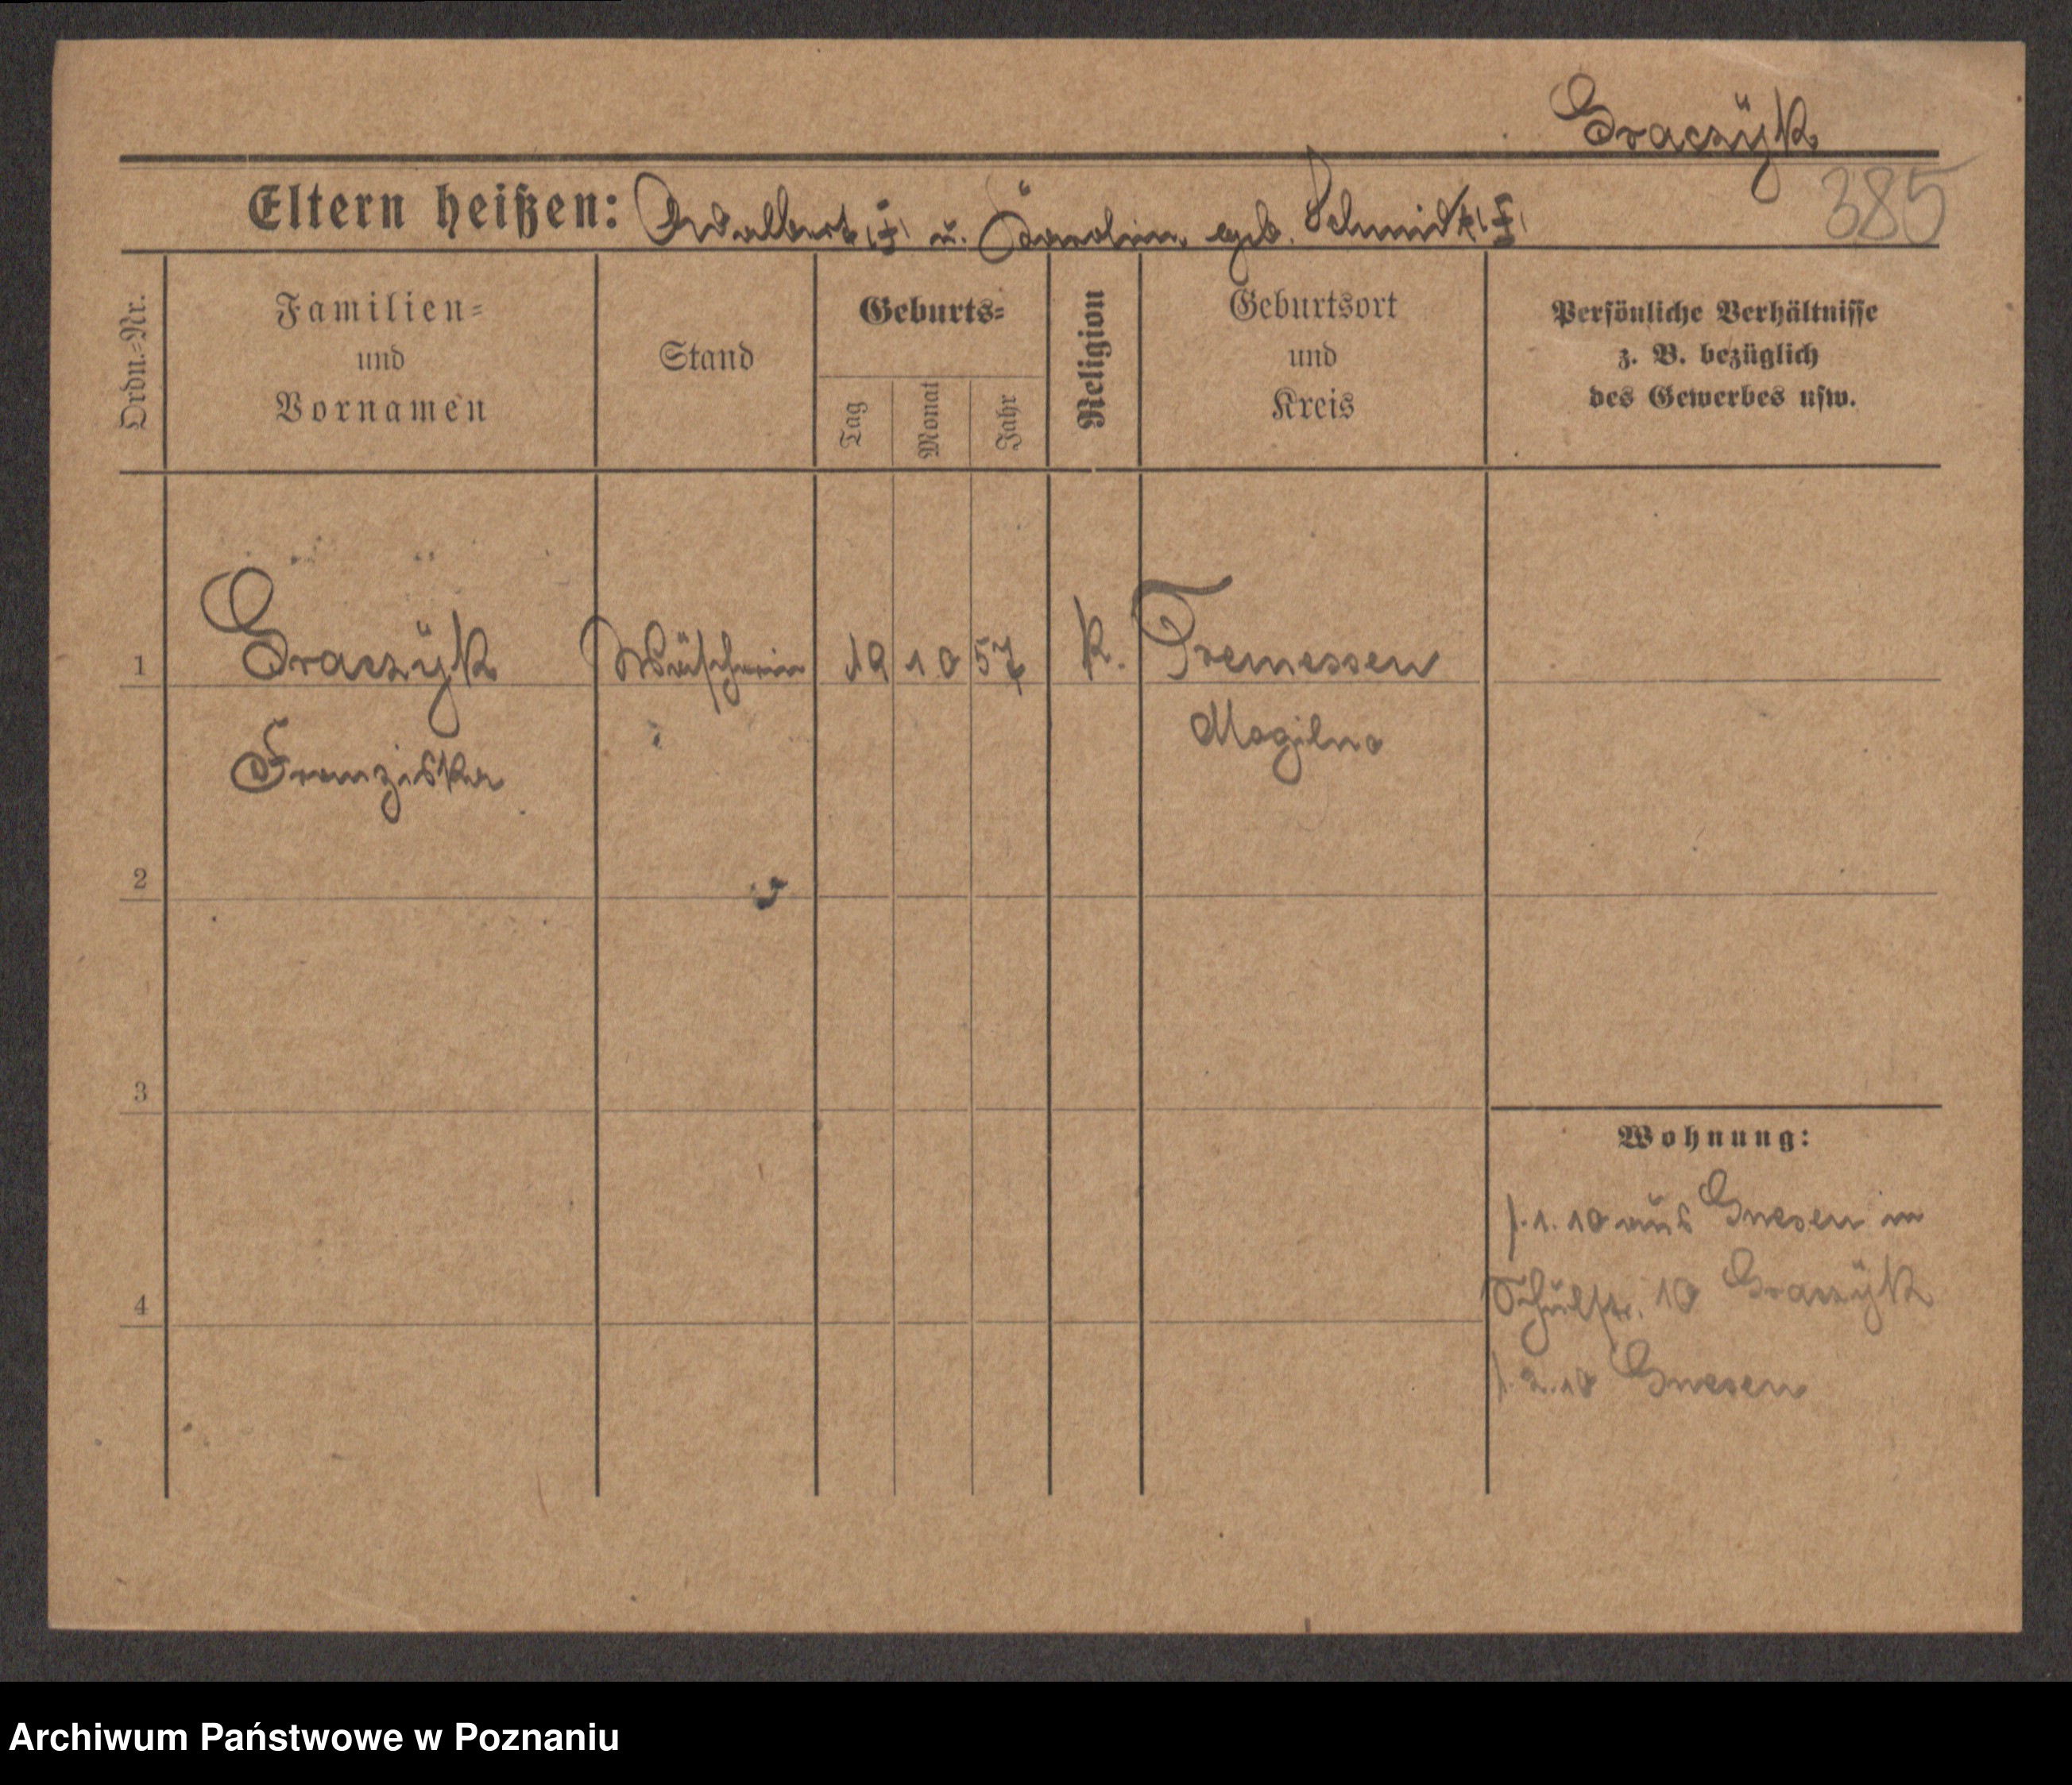 Graczÿk
385
Eltern heißen: Adalbert (†) u. Karolina geb. Schmidt (†)
Ordn.=Nr.
Familien=
und
Vornamen
Stand
Geburts=
Tag
Monat
Jahr
Religion
Geburtsort
und
Kreis
Persönliche Verhältnisse
z. B. bezüglich
des Gewerbes usw.
1
Graczÿk Wäscherin 19 10 57 K. Tremessen
Franziska Mogilno
2
3
4
Wohnung:
/.1.10 aus Gnesen in
Schulstr. 10 Graczÿk
/.2.10 Gnesen
Archiwum Państwowe w Poznaniu